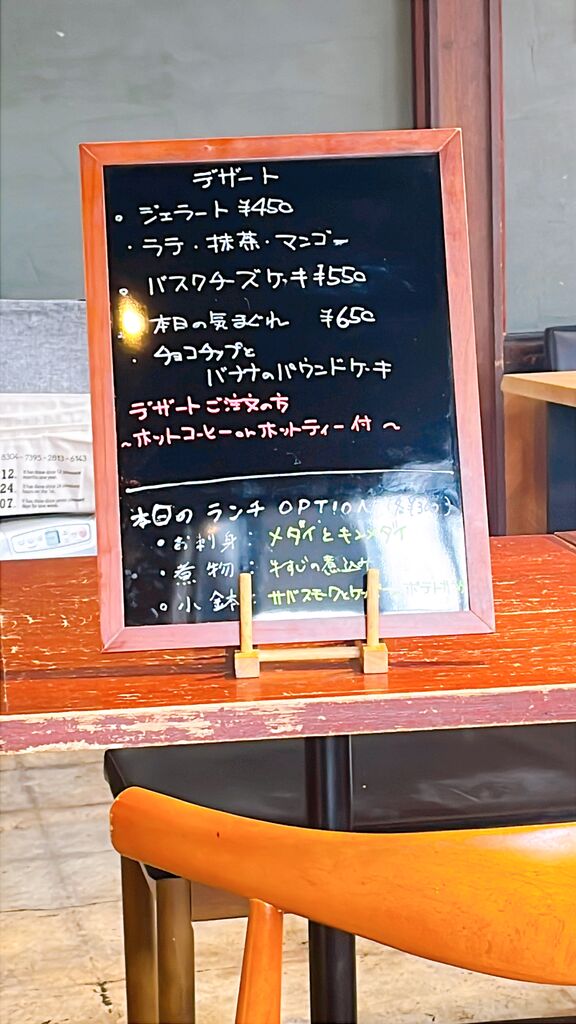 デザート
。ジェラート ¥450
・ラテ・抹茶・マンゴー
バスクチーズケーキ ¥550
本日の気まぐれ ¥650
・チョコチップと
バナナのパウンドケーキ
デザートご注文の方
〜ホットコーヒーorホットティー付〜
本日の ランチ OPTION
・お刺身: メダイとキンメダイ
・煮物: 牛すじの煮込み
。小鉢: サバスモークと
8304-7395-2813-6143
12.
24
07.